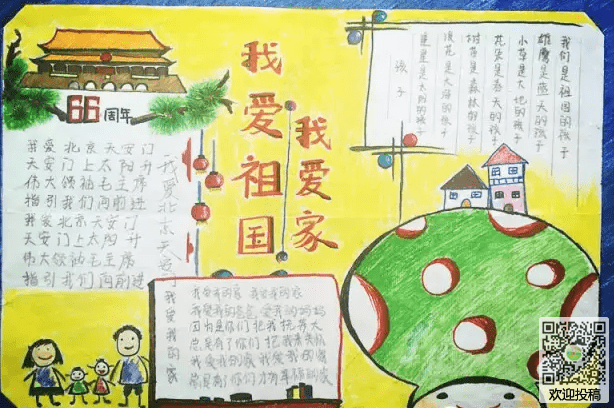 66周年
我爱祖国
我爱家
我爱北京天安门
天安门上太阳升
伟大领袖毛主席
指引我们向前进
我爱北京天安门
天安门上太阳升
伟大领袖毛主席
指引我们向前进
我爱北京天安门
我们是祖国的孩子
雄鹰是蓝天的孩子
小草是大地的孩子
花朵是春天的孩子
树苗是森林的孩子
浪花是大海的孩子
星星是太阳的孩子
孩子
我爱我的家
我爱我的爸爸 爱我的妈妈
因为是你们把我抚养大
我爱我的家
欢迎投稿